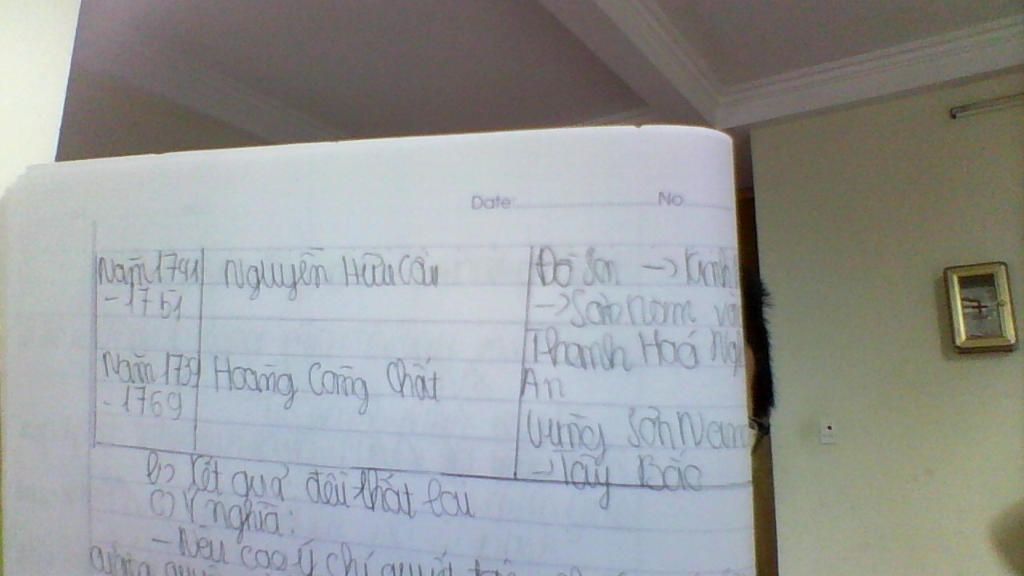 Date No
Năm 1741 Nguyễn Hữu Cầu Đồ Sơn -> Kinh
- 1751 -> Sơn Nam và
Thanh Hoá Ngh
Năm 1739 Hoàng Công Chất An
- 1769
Vùng Sơn Nam
-> Tây Bắc
b) Kết quả đều thất bại
c) Ý nghĩa:
- Nêu cao ý chí